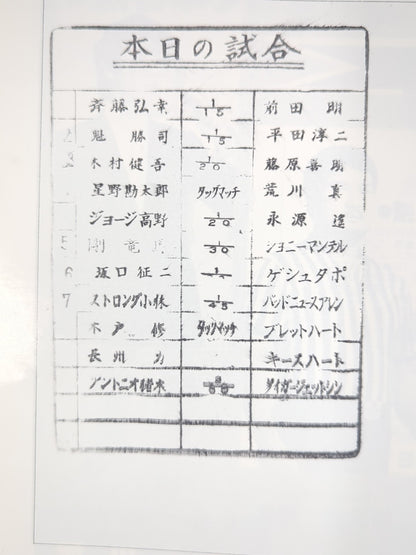 本日の試合
斉藤弘幸 1/15 前田 明
魁 勝司 1/15 平田淳二
木村健吾 1/20 藤原喜明
星野勘太郎 タッグマッチ 荒川 真
ジョージ高野 1/20 永源 遙
5 剛 竜馬 1/30 ジョニーマンテル
6 坂口征二 ゲシュタポ
7 ストロング小林 1/45 バッドニュースアレン
木戸 修 タッグマッチ ブレットハート
長州 力 キースハート
アントニオ猪木 タイガージェットシン